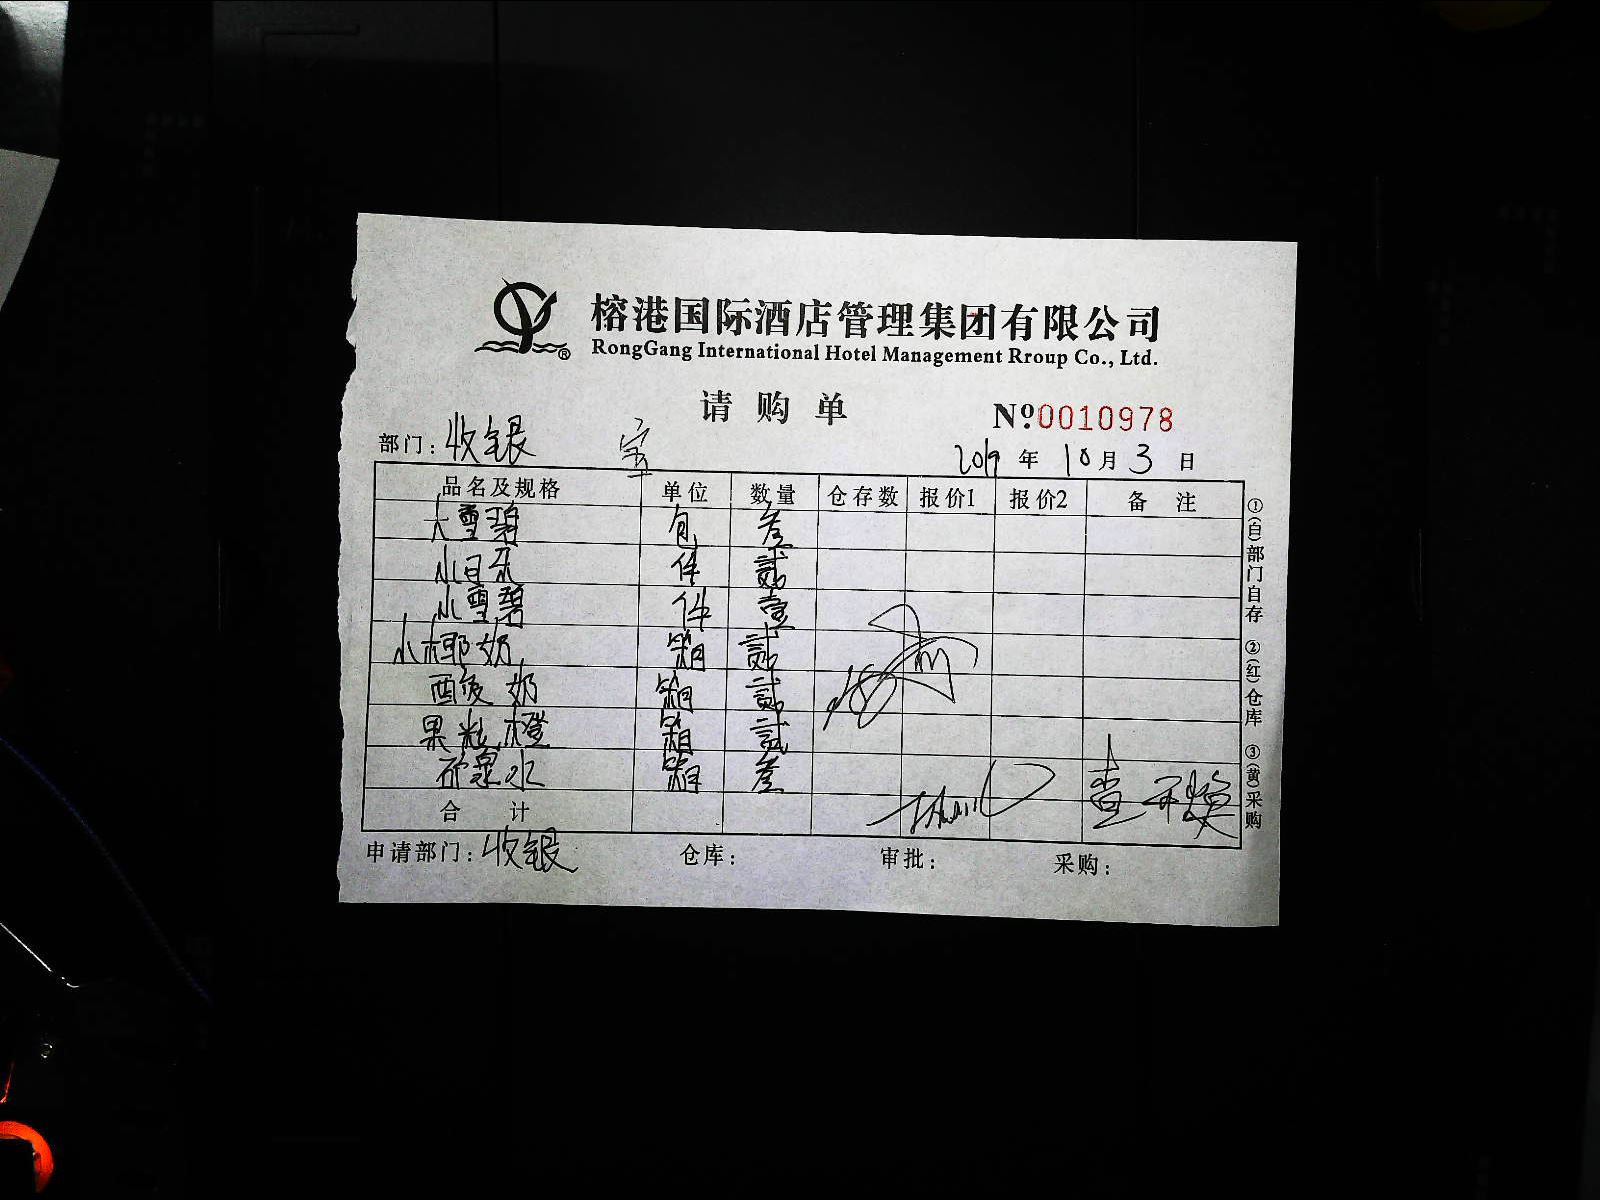 榕港国际酒店管理集团有限公司
RongGang International Hotel Management Rroup Co., Ltd.
请购单
№0010978
部门：收银
2019年10月3日
品名及规格 单位 数量 仓存数 报价1 报价2 备注
大雪碧 包 叁
小百朵 件 贰
小雪碧 件 壹
小椰奶 箱 贰
酸奶 箱 贰
果粒橙 箱 贰
矿泉水 箱 叁
合计
申请部门：收银 仓库： 审批： 采购：
①(白)部门自存 ②(红)仓库 ③(黄)采购